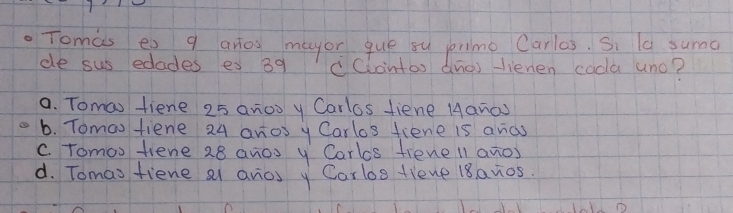 • Tomás es 9 años mayor que su primo Carlos. Si la suma
de sus edades es 39 ¿Cuántos años tienen cada uno?
a. Tomas tiene 25 años y Carlos tiene 14 años
b. Tomas tiene 24 años y Carlos tiene 15 años
c. Tomas tiene 28 años y Carlos tiene 11 años
d. Tomas tiene 21 años y Carlos tiene 18 años.